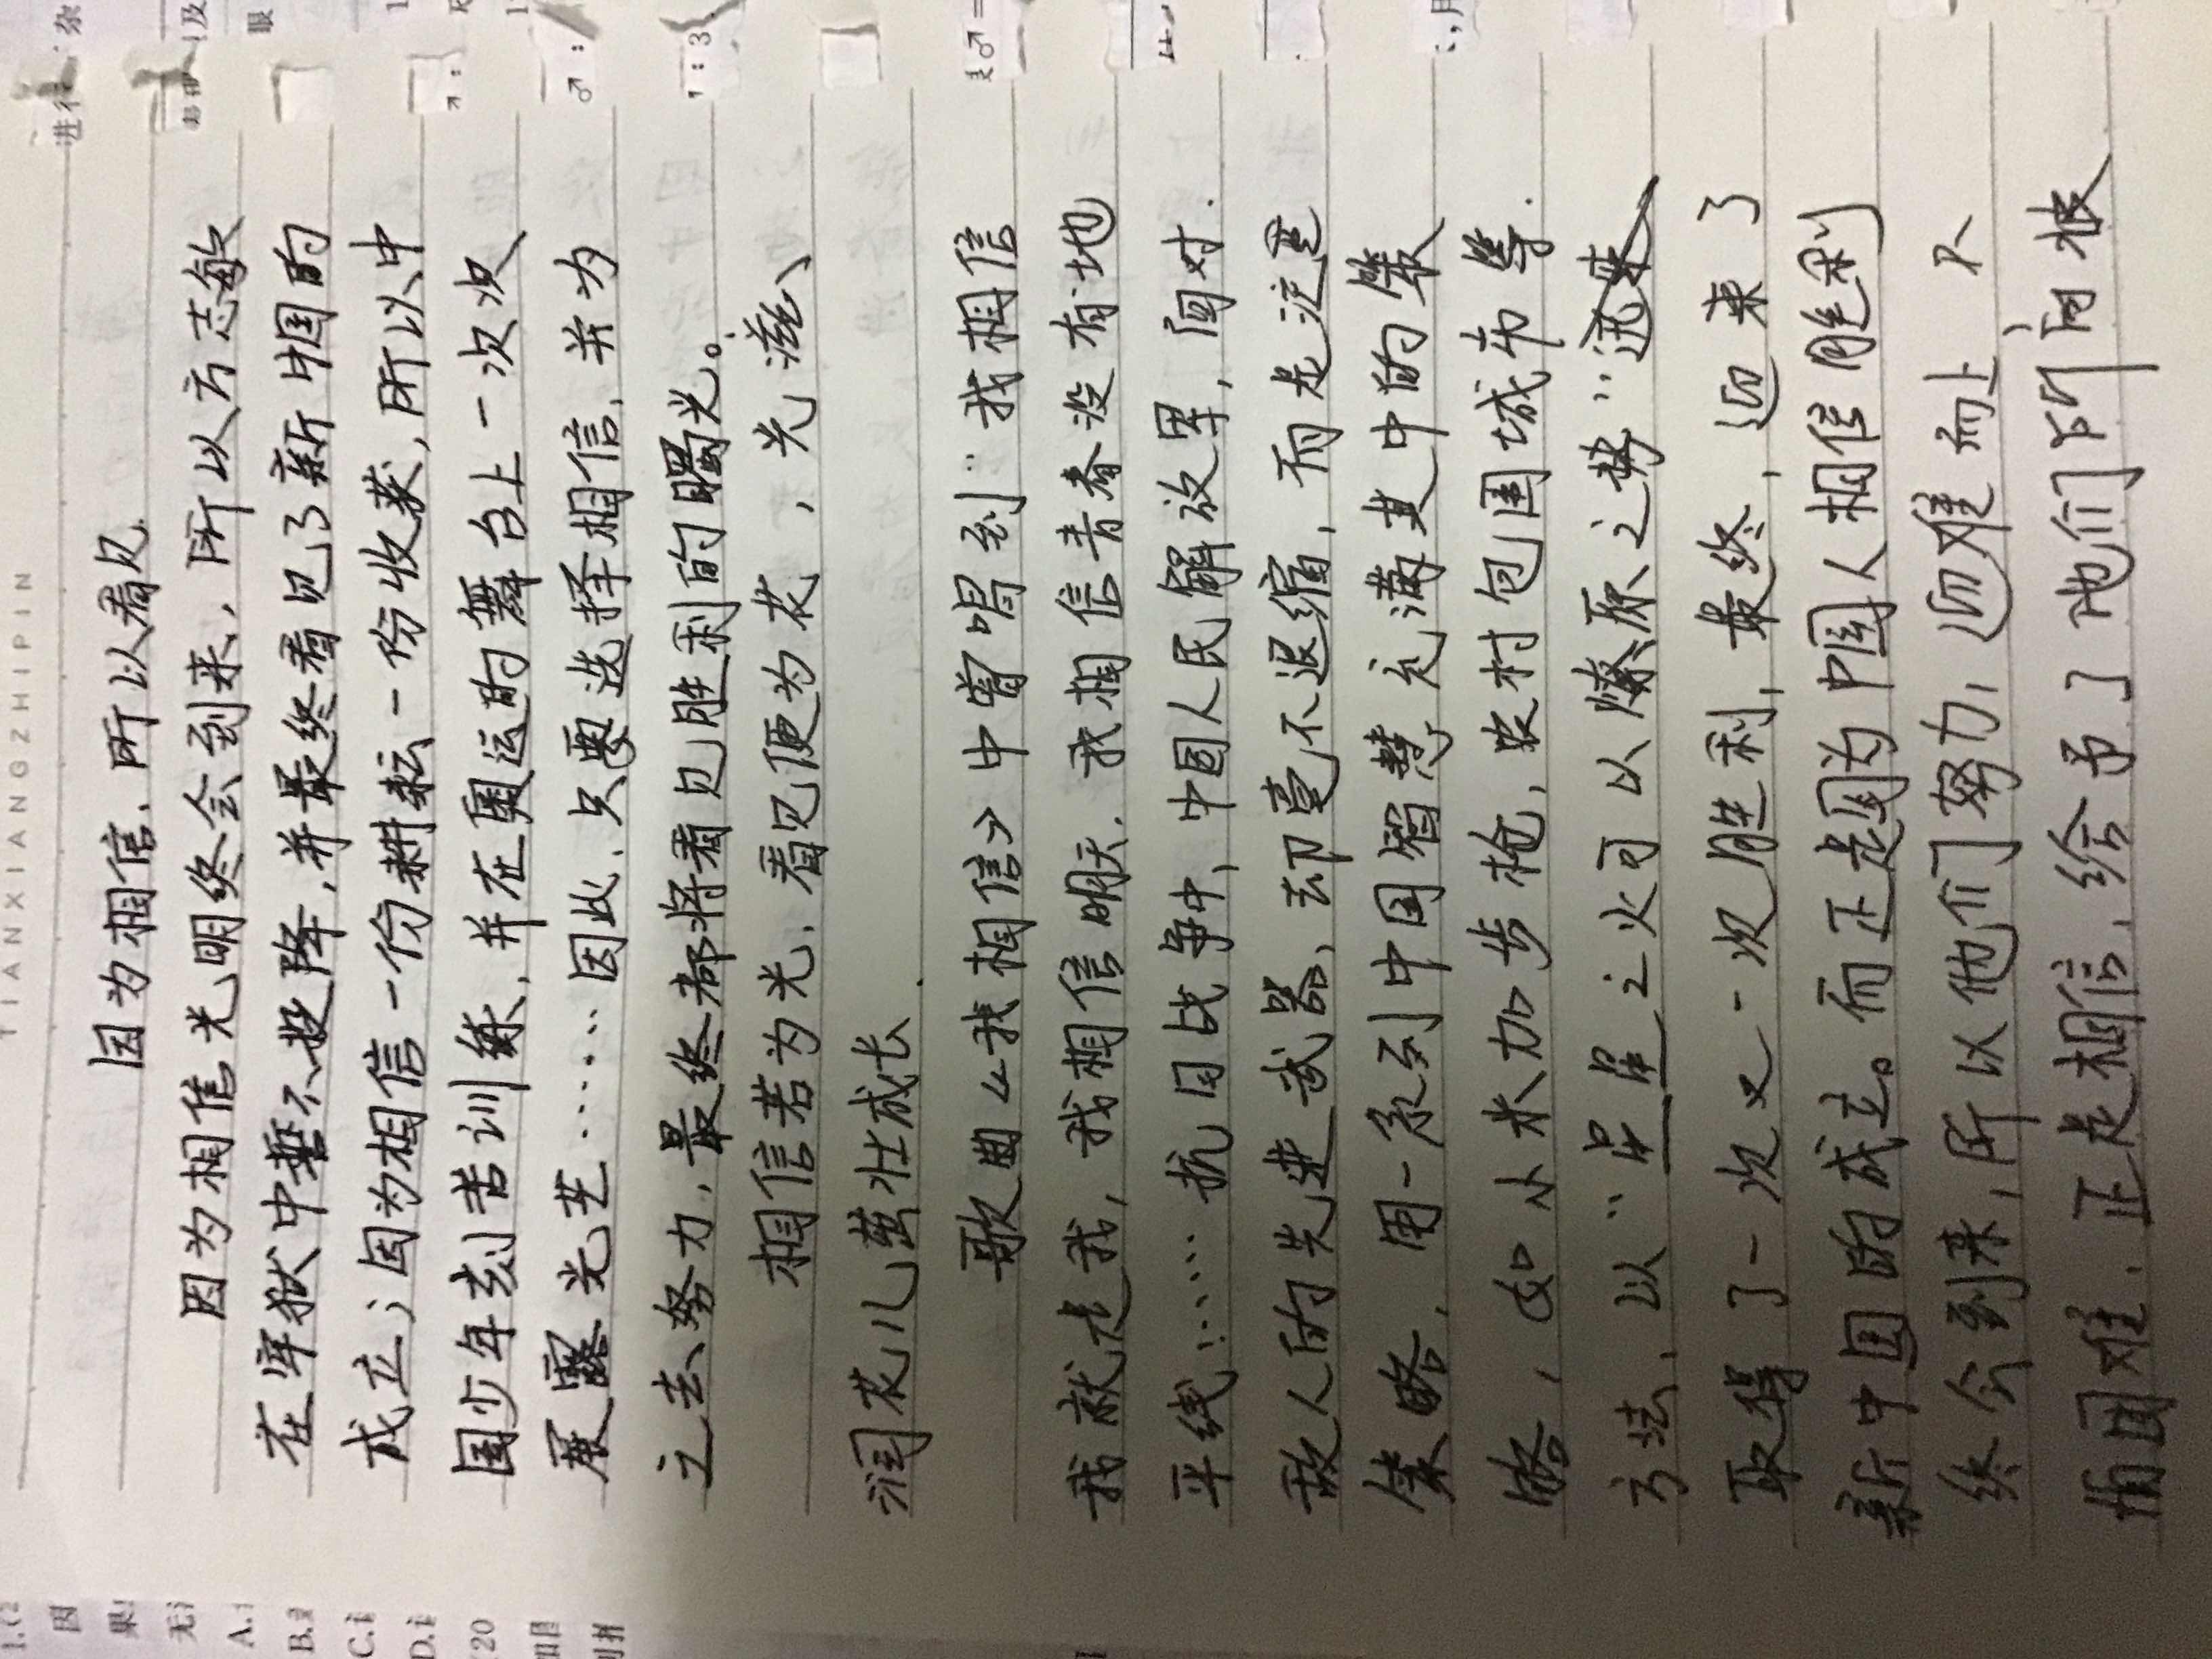 TIANXIANGZHIPIN
因为相信,所以看见.
因为相信光明终会到来,所以方志敏
在牢狱中誓不投降,并最终看见了新中国的
成立;因为相信一份耕耘一份收获,所以中
国少年刻苦训练,并在奥运的舞台上一次次
展露光芒……因此,只要选择相信,并为
之去努力,最终都将看见胜利的曙光。
相信若为光,看见便为花,光滋
润花儿茁壮成长.
歌曲《我相信》中曾唱到:“我相信
我就是我,我相信明天,我相信青春没有地
平线……抗日战争中,中国人民解放军,面对
敌人的先进武器,却毫不退缩,而是注意
策略,用一系列中国智慧充满其中的策
略,如小米加步枪,农村包围城市等
方法,以“星星之火可以燎原之势”迅来
取得了一次又一次胜利,最终,迎来了
新中国的成立。而正是因为中国人相信胜利
终会到来,所以他们努力,迎难而上,不
怕困难,正是相信,给予了他们所向披
进行
杂
眼
♂:
:3
A.
B.
C.
D.
因
果
无